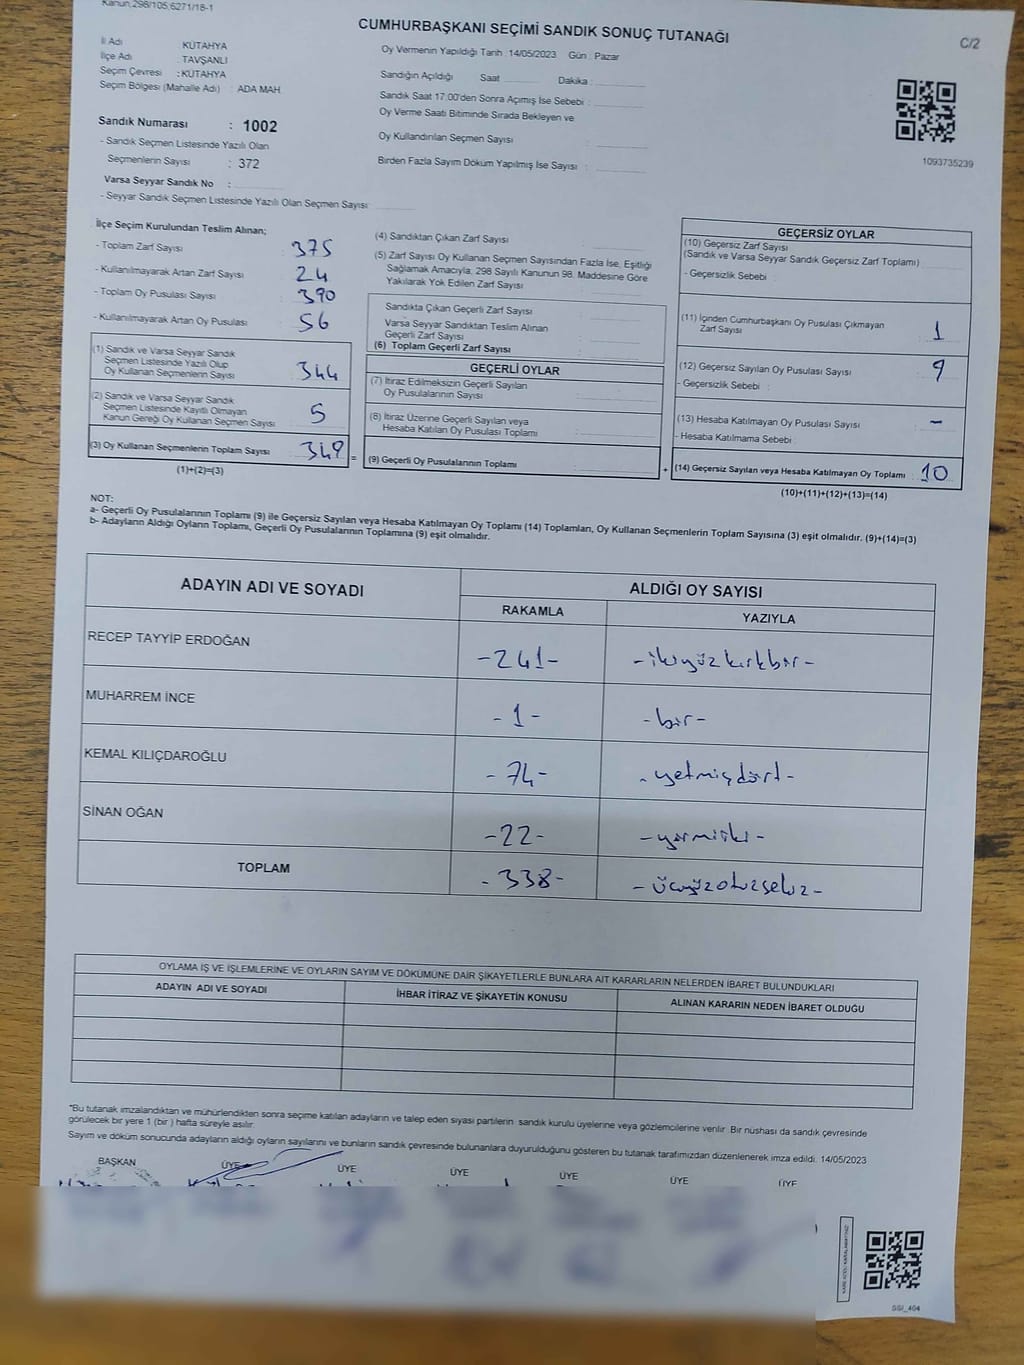 Kanun;298/105;6271/18-1
CUMHURBAŞKANI SEÇİMİ SANDIK SONUÇ TUTANAĞI
C/2
İl Adı KÜTAHYA
İlçe Adı : TAVŞANLI
Seçim Çevresi : KÜTAHYA
Seçim Bölgesi (Mahalle Adı) : ADA MAH
Sandık Numarası : 1002
- Sandık Seçmen Listesinde Yazılı Olan
Seçmenlerin Sayısı : 372
Varsa Seyyar Sandık No :
- Seyyar Sandık Seçmen Listesinde Yazılı Olan Seçmen Sayısı:
Oy Vermenin Yapıldığı Tarih : 14/05/2023 Gün : Pazar
Sandığın Açıldığı Saat Dakika :
Sandık Saat 17:00'den Sonra Açımış İse Sebebi :
Oy Verme Saati Bitiminde Sırada Bekleyen ve
Oy Kullandırılan Seçmen Sayısı :
Birden Fazla Sayım Döküm Yapılmış İse Sayısı :
1093735239
İlçe Seçim Kurulundan Teslim Alınan;
- Toplam Zarf Sayısı : 375
- Kullanılmayarak Artan Zarf Sayısı : 24
- Toplam Oy Pusulası Sayısı : 390
- Kullanılmayarak Artan Oy Pusulası : 56
(1) Sandık ve Varsa Seyyar Sandık
Seçmen Listesinde Yazılı Olup
Oy Kullanan Seçmenlerin Sayısı : 344
(2) Sandık ve Varsa Seyyar Sandık
Seçmen Listesinde Kayıtlı Olmayan
Kanun Gereği Oy Kullanan Seçmen Sayısı : 5
(3) Oy Kullanan Seçmenlerin Toplam Sayısı : 349
(1)+(2)=(3)
=
(4) Sandıktan Çıkan Zarf Sayısı :
(5) Zarf Sayısı Oy Kullanan Seçmen Sayısından Fazla İse, Eşitliği
Sağlamak Amacıyla; 298 Sayılı Kanunun 98. Maddesine Göre
Yakılarak Yok Edilen Zarf Sayısı :
Sandıkta Çıkan Geçerli Zarf Sayısı :
Varsa Seyyar Sandıktan Teslim Alınan
Geçerli Zarf Sayısı :
(6) Toplam Geçerli Zarf Sayısı :
GEÇERLİ OYLAR
(7) İtiraz Edilmeksizin Geçerli Sayılan
Oy Pusulalarının Sayısı :
(8) İtiraz Üzerine Geçerli Sayılan veya
Hesaba Katılan Oy Pusulası Toplamı :
(9) Geçerli Oy Pusulalarının Toplamı :
+
GEÇERSİZ OYLAR
(10) Geçersiz Zarf Sayısı
(Sandık ve Varsa Seyyar Sandık Geçersiz Zarf Toplamı)
- Geçersizlik Sebebi :
(11) İçinden Cumhurbaşkanı Oy Pusulası Çıkmayan
Zarf Sayısı : 1
(12) Geçersiz Sayılan Oy Pusulası Sayısı : 9
- Geçersizlik Sebebi :
(13) Hesaba Katılmayan Oy Pusulası Sayısı : -
- Hesaba Katılmama Sebebi :
(14) Geçersiz Sayılan veya Hesaba Katılmayan Oy Toplamı : 10
(10)+(11)+(12)+(13)=(14)
NOT:
a- Geçerli Oy Pusulalarının Toplamı (9) ile Geçersiz Sayılan veya Hesaba Katılmayan Oy Toplamı (14) Toplamları, Oy Kullanan Seçmenlerin Toplam Sayısına (3) eşit olmalıdır. (9)+(14)=(3)
b- Adayların Aldığı Oyların Toplamı, Geçerli Oy Pusulalarının Toplamına (9) eşit olmalıdır.
ADAYIN ADI VE SOYADI ALDIĞI OY SAYISI
RAKAMLA YAZIYLA
RECEP TAYYİP ERDOĞAN -241- -ikiyüzkırkbir-
MUHARREM İNCE -1- -bir-
KEMAL KILIÇDAROĞLU -74- -yetmişdört-
SİNAN OĞAN -22- -yirmiiki-
TOPLAM -338- -üçyüzotuzsekiz-
OYLAMA İŞ VE İŞLEMLERİNE VE OYLARIN SAYIM VE DÖKÜMÜNE DAİR ŞİKAYETLERLE BUNLARA AİT KARARLARIN NELERDEN İBARET BULUNDUKLARI
ADAYIN ADI VE SOYADI İHBAR İTİRAZ VE ŞİKAYETİN KONUSU ALINAN KARARIN NEDEN İBARET OLDUĞU
*Bu tutanak imzalandıktan ve mühürlendikten sonra seçime katılan adayların ve talep eden siyasi partilerin sandık kurulu üyelerine veya gözlemcilerine verilir. Bir nüshası da sandık çevresinde
görülecek bir yere 1 (bir) hafta süreyle asılır.
Sayım ve döküm sonucunda adayların aldığı oyların sayılarını ve bunların sandık çevresinde bulunanlara duyurulduğunu gösteren bu tutanak tarafımızdan düzenlenerek imza edildi. 14/05/2023
BAŞKAN ÜYE ÜYE ÜYE ÜYE ÜYE ÜYE
SSI_404